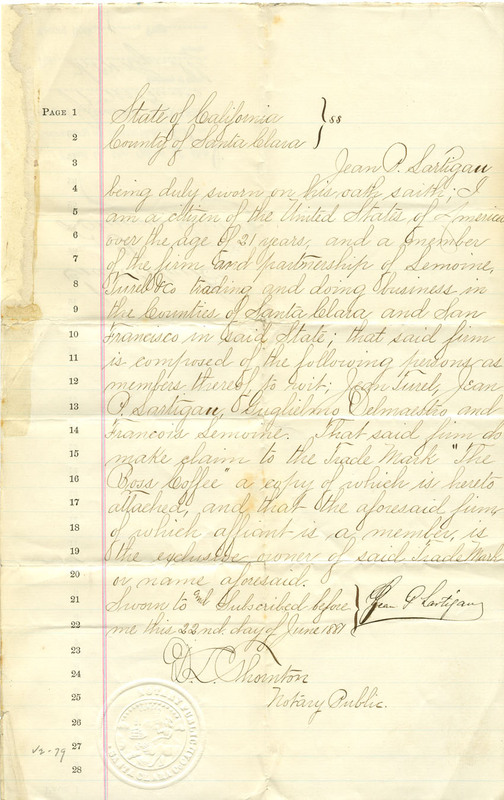 PAGE 1 State of California } ss
2 County of Santa Clara
3 Jean P. Sartigau
4 being duly sworn on his oath saith; I
5 am a citizen of the United States of America
6 over the age of 21 years, and a member
7 of the firm and partnership of Lemoine,
8 Turel & Co trading and doing business in
9 the Counties of Santa Clara and San
10 Francisco in said State; that said firm
11 is composed of the following persons as
12 members thereof to wit: Jean Turel, Jean
13 P. Sartigau, Guglielmo Delmaestro and
14 Francois Lemoine. That said firm do
15 make claim to the Trade Mark "The
16 Boss Coffee" a copy of which is hereto
17 attached, and that the aforesaid firm
18 of which affiant is a member, is
19 the exclusive owner of said Trade Mark
20 or name aforesaid.
21 Sworn to and Subscribed before } Jean P Sartigau
22 me this 22nd day of June 1887
23
24 Thornton
25 Notary Public.
26
27
28
V2-79
NOTARY PUBLIC
SANTA CLARA